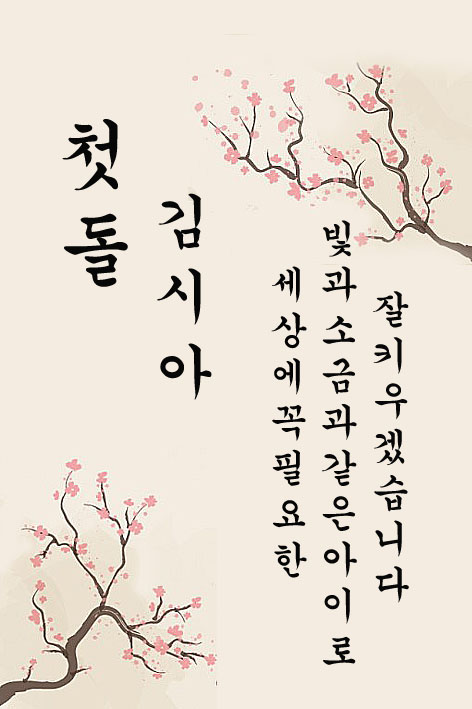 첫돌
김시아
세상에꼭필요한
빛과소금과같은아이로
잘키우겠습니다